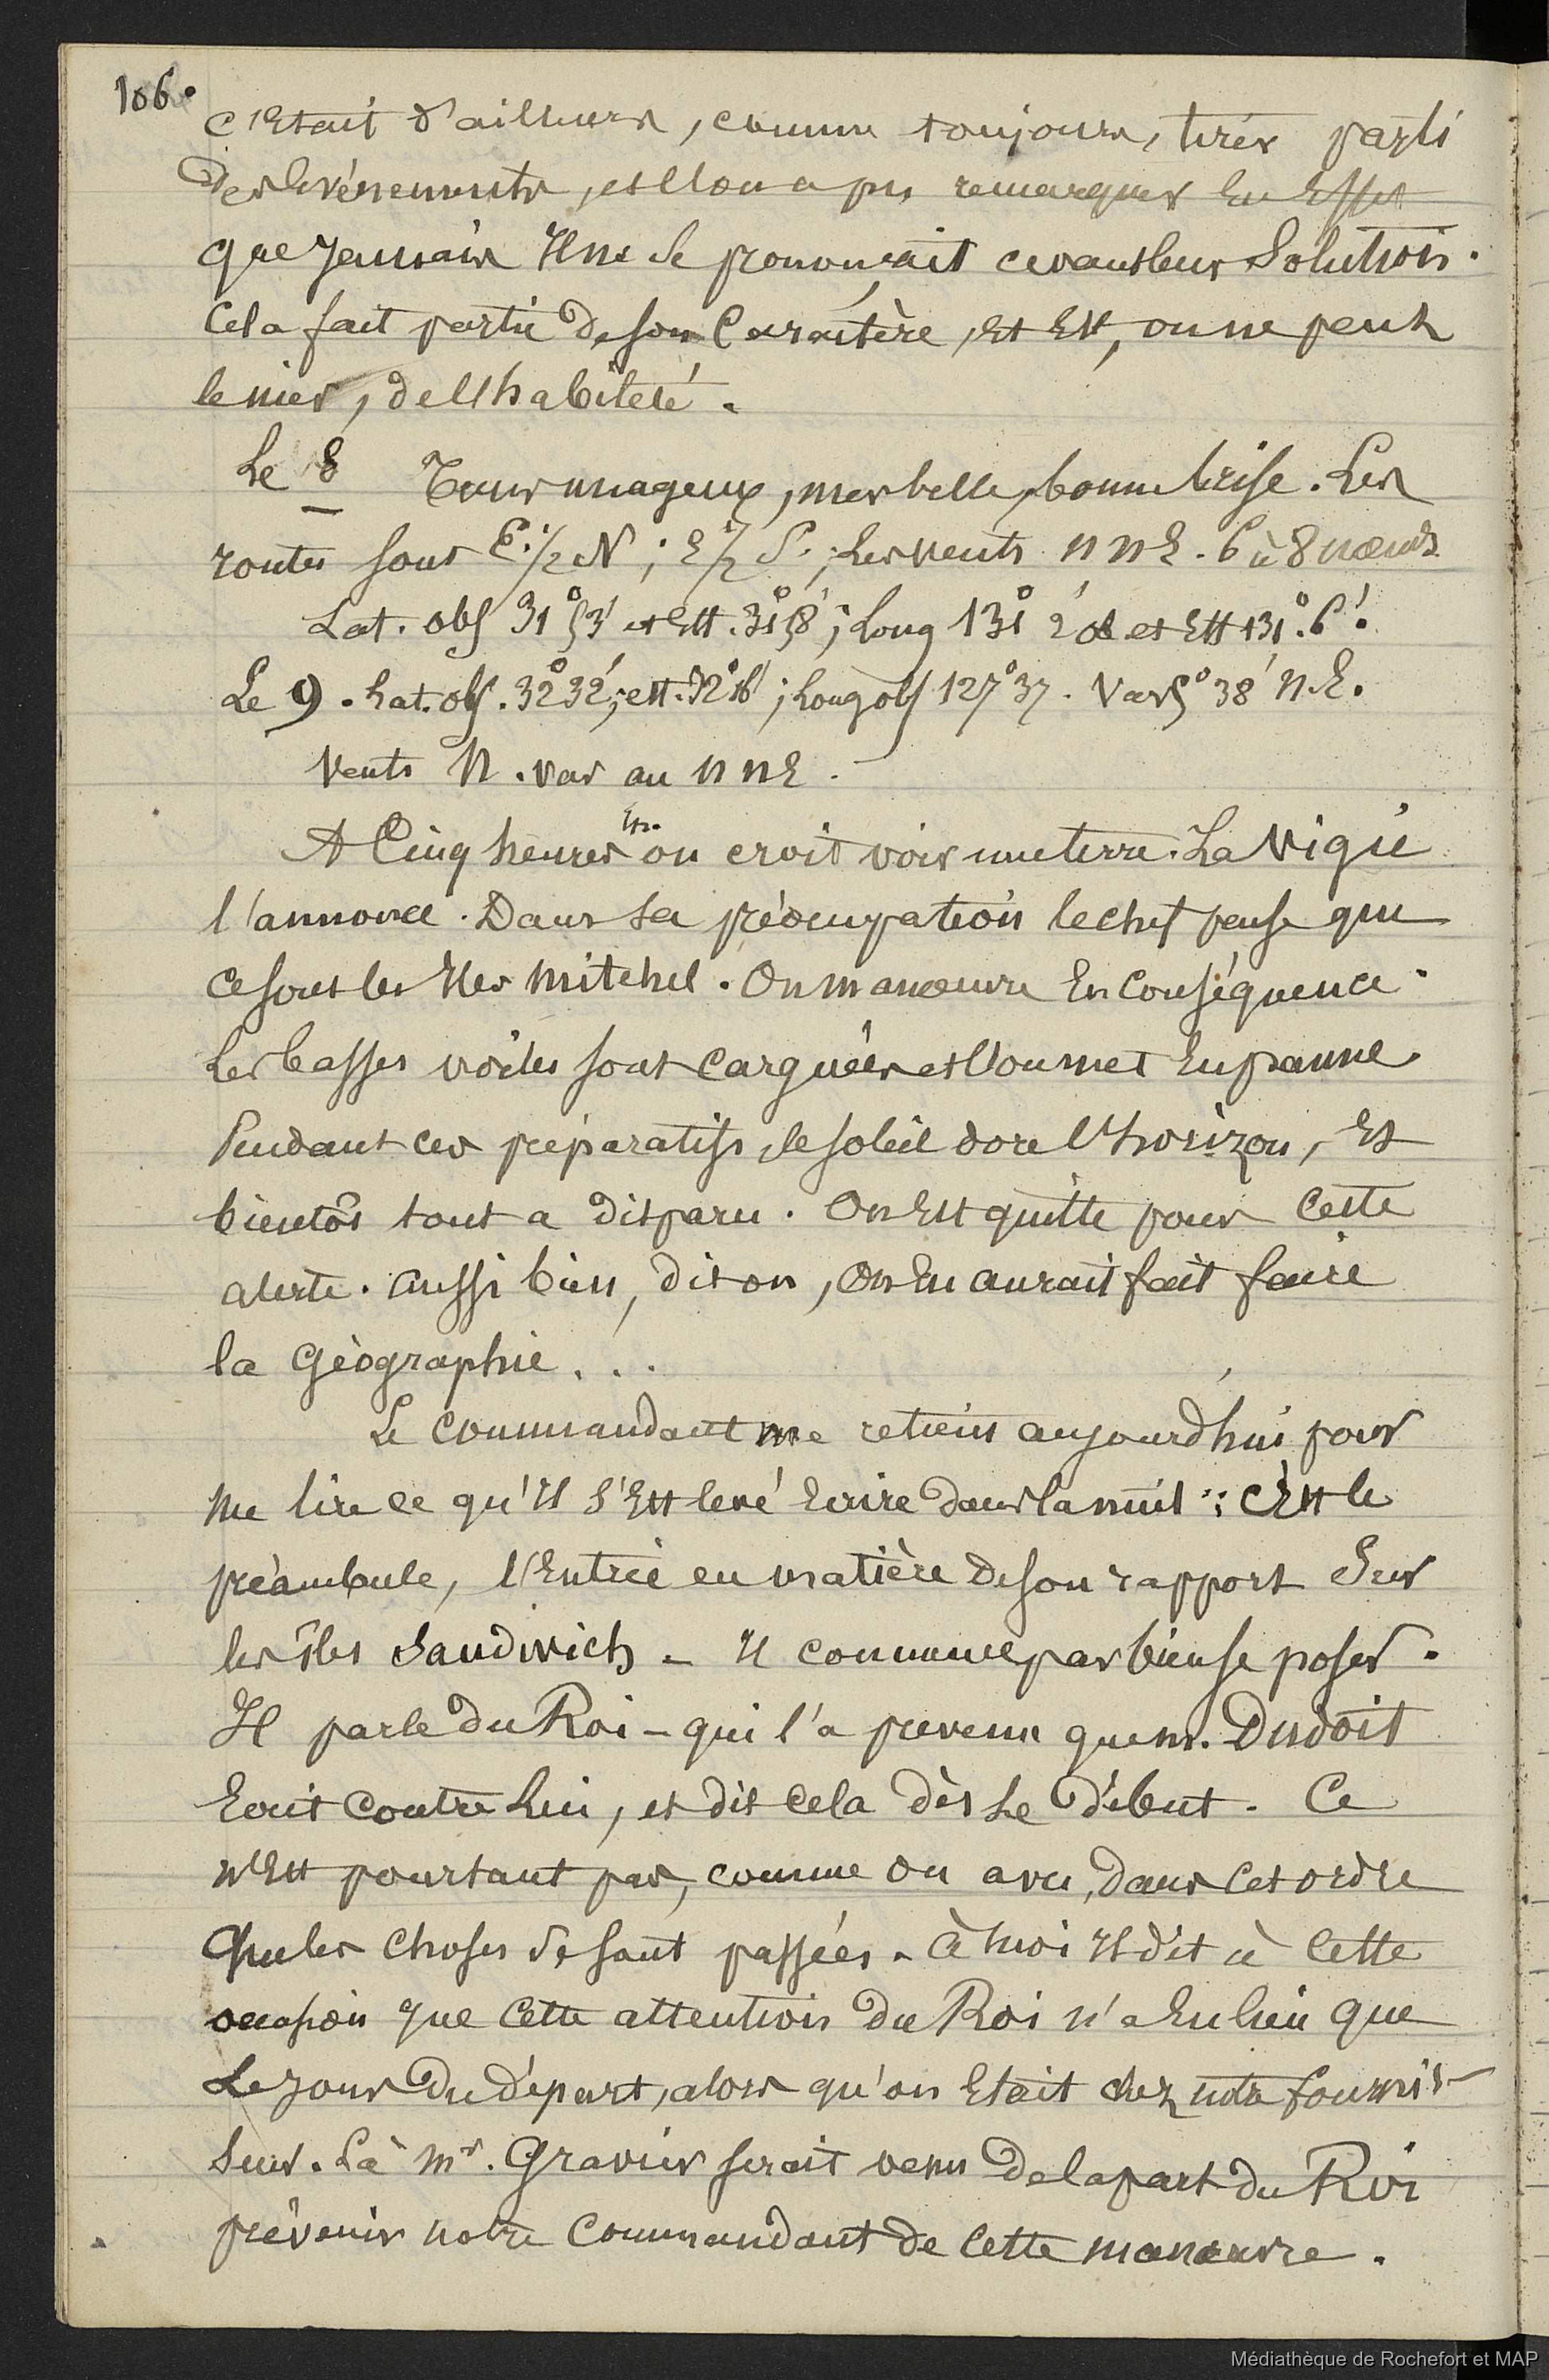 106.
C'Etait d'ailleurs, comme toujours, tirer parti
des Evénements, et l'on a pu remarquer En Effet
que Jamais Il ne se prononçait avant leur Solution.
Cela fait partie de son Caractère, Et Est, on ne peut
le nier, de l'habileté.
Le 8 Temps nuageux, mer belle, bonne brise. Les
routes sont E. 1/2 N ; E 1/2 S. ; Les vents NNE. 6 à 8 noeuds
Lat. obs 31° 53' et Est. 31° 58' ; Long 131° 2' et Est 131°. 6'.
Le 9. Lat. obs. 32° 32' ; est. 32° 16' ; Long obs 127° 37. Var 9° 38' N.E.
Vents N. var au NNE.
A Cinq heures on croit voir une terre. La Vigie
l'annonce. Dans sa préocupation le chef pense que
ce sont les Iles Mitchel. On manoeuvre En Conséquence.
Les basses voiles sont Carguées et l'on met En panne
Pendant ces préparatifs, le soleil dore l'horizon, Et
bientôt tout a disparu. On Est quitte pour Cette
alerte. Aussi bien, dit on, On En aurait fait faire
la Géographie...
Le Commandant me retient aujourd'hui pour
me lire ce qu'Il s'Est levé Ecrire dans la nuit : C'Est le
préambule, l'Entrée en matière de son rapport Sur
les îles Sandwich - Il commence par bien se poser.
Il parle du Roi - qui l'a prevenu que M. Dudoit
Ecrit Contre Lui, et dit Cela dès Le Début. Ce
n'Est pourtant pas, comme on a vu, dans Cet ordre
Que les Choses Se sont passées - à moi Il dit à Cette
occasion que Cette attention du Roi n'a Eu lieu que
Le Jour du départ, alors qu'on Etait chez notre fournis-
seur. Là Mr. Gravier serait venu de la part du Roi
prévenir notre Commandant de Cette manoeuvre.
Médiathèque de Rochefort et MAP